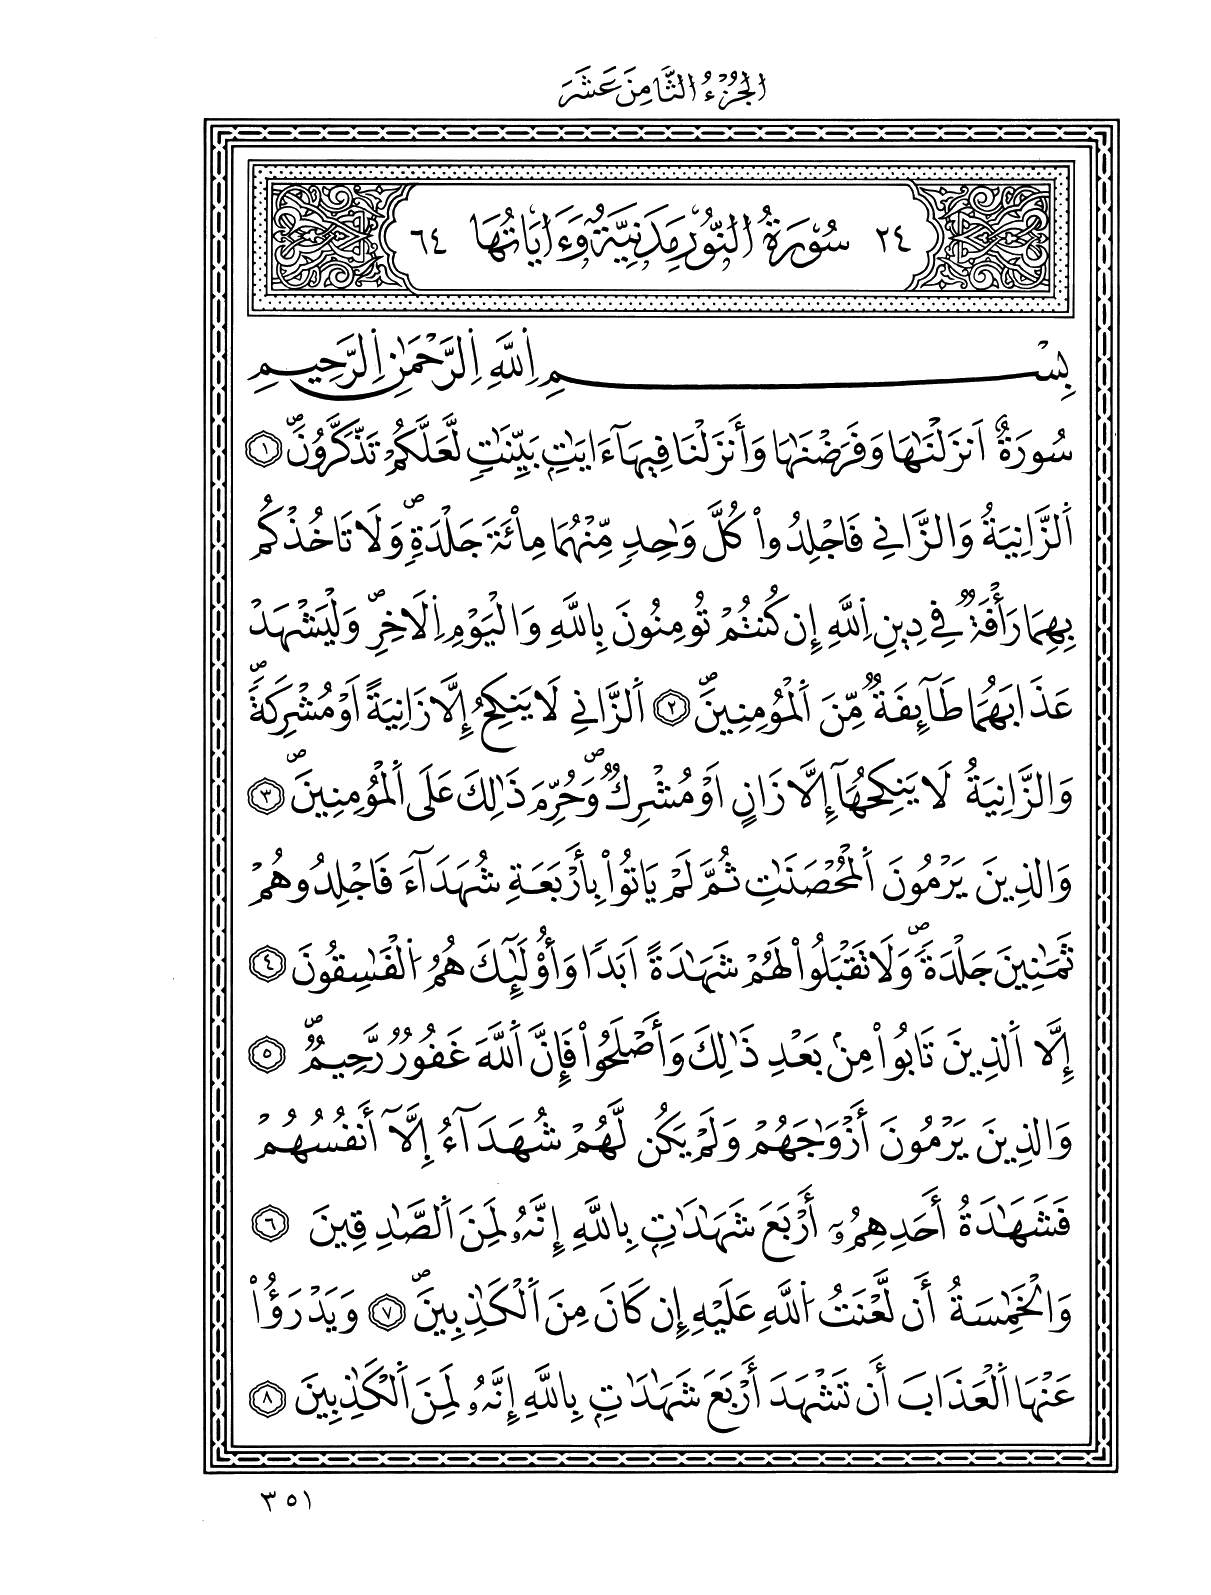 الجُزْءُ الثَّامِنَ عَشَرَ
٢٤ سُورَةُ النُّورِ مَدَنِيَّةٌ وَءَايَاتُهَا ٦٤
بِسْمِ اِللَّهِ اِلرَّحْمَٰنِ اِلرَّحِيمِ
سُورَةٌ اَنزَلْنَٰهَا وَفَرَضْنَٰهَا وَأَنزَلْنَا فِيهَآ ءَايَٰتِۢ بَيِّنَٰتٖ لَّعَلَّكُمْ تَذَّكَّرُونَۖ ١
اَلزَّانِيَةُ وَالزَّانِے فَاجْلِدُواْ كُلَّ وَٰحِدٖ مِّنْهُمَا مِاْئَةَ جَلْدَةٖۖ وَلَا تَاخُذْكُم
بِهِمَا رَأْفَةٞ فِے دِينِ اِللَّهِ إِن كُنتُمْ تُومِنُونَ بِاللَّهِ وَالْيَوْمِ اِلَاخِرِۖ وَلْيَشْهَدْ
عَذَابَهُمَا طَآئِفَةٞ مِّنَ اَلْمُومِنِينَۖ ٢ اَلزَّانِے لَا يَنكِحُ إِلَّا زَانِيَةً اَوْ مُشْرِكَةٗۖ
وَالزَّانِيَةُ لَا يَنكِحُهَآ إِلَّا زَانٍ اَوْ مُشْرِكٞۖ وَحُرِّمَ ذَٰلِكَ عَلَى اَلْمُومِنِينَۖ ٣
وَالذِينَ يَرْمُونَ اَلْمُحْصَنَٰتِ ثُمَّ لَمْ يَاتُواْ بِأَرْبَعَةِ شُهَدَآءَ فَاجْلِدُوهُمْ
ثَمَٰنِينَ جَلْدَةٗۖ وَلَا تَقْبَلُواْ لَهُمْ شَهَٰدَةً اَبَدٗا وَأُوْلَٰٓئِكَ هُمُ اُلْفَٰسِقُونَ ٤
إِلَّا اَلذِينَ تَابُواْ مِنۢ بَعْدِ ذَٰلِكَ وَأَصْلَحُواْ فَإِنَّ اَللَّهَ غَفُورٞ رَّحِيمٞۖ ٥
وَالذِينَ يَرْمُونَ أَزْوَٰجَهُمْ وَلَمْ يَكُن لَّهُمْ شُهَدَآءُ إِلَّآ أَنفُسُهُمْ
فَشَهَٰدَةُ أَحَدِهِمُۥٓ أَرْبَعَ شَهَٰدَٰتِۢ بِاللَّهِ إِنَّهُۥ لَمِنَ اَلصَّٰدِقِينَ ٦
وَالْخَٰمِسَةُ أَن لَّعْنَتُ اُللَّهِ عَلَيْهِ إِن كَانَ مِنَ اَلْكَٰذِبِينَۖ ٧ وَيَدْرَؤُاْ
عَنْهَا اَلْعَذَابَ أَن تَشْهَدَ أَرْبَعَ شَهَٰدَٰتِۢ بِاللَّهِ إِنَّهُۥ لَمِنَ اَلْكَٰذِبِينَ ٨
٣٥١